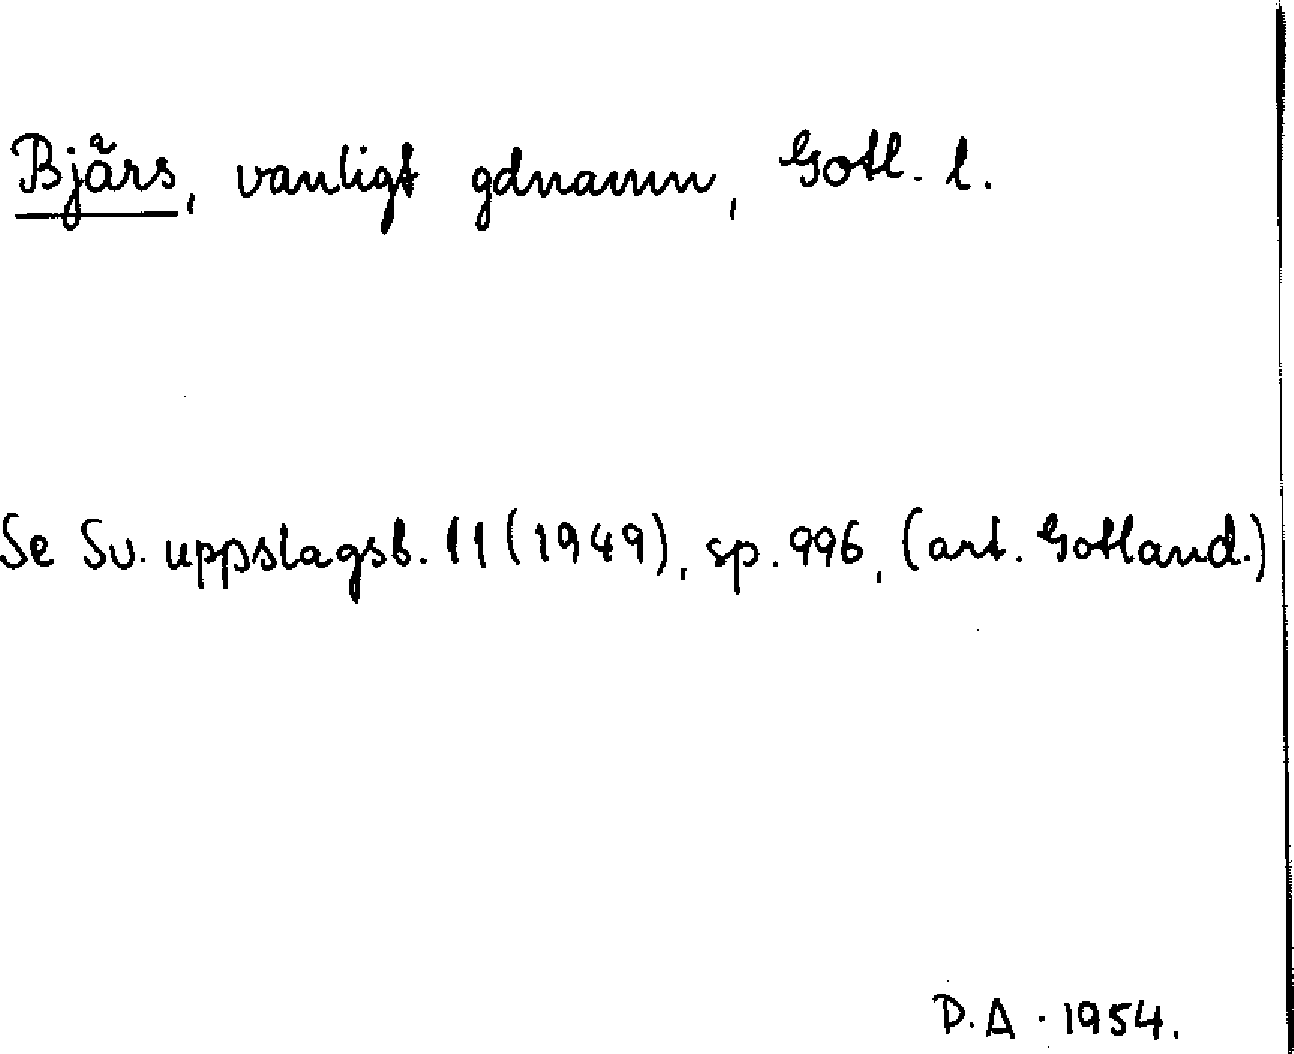 Bjärs, vanligt gdnamn, Gotl. l.
Se Sv. uppslagsb. 11 (1949), sp. 996, (art. Gotland.)
D.A. 1954.